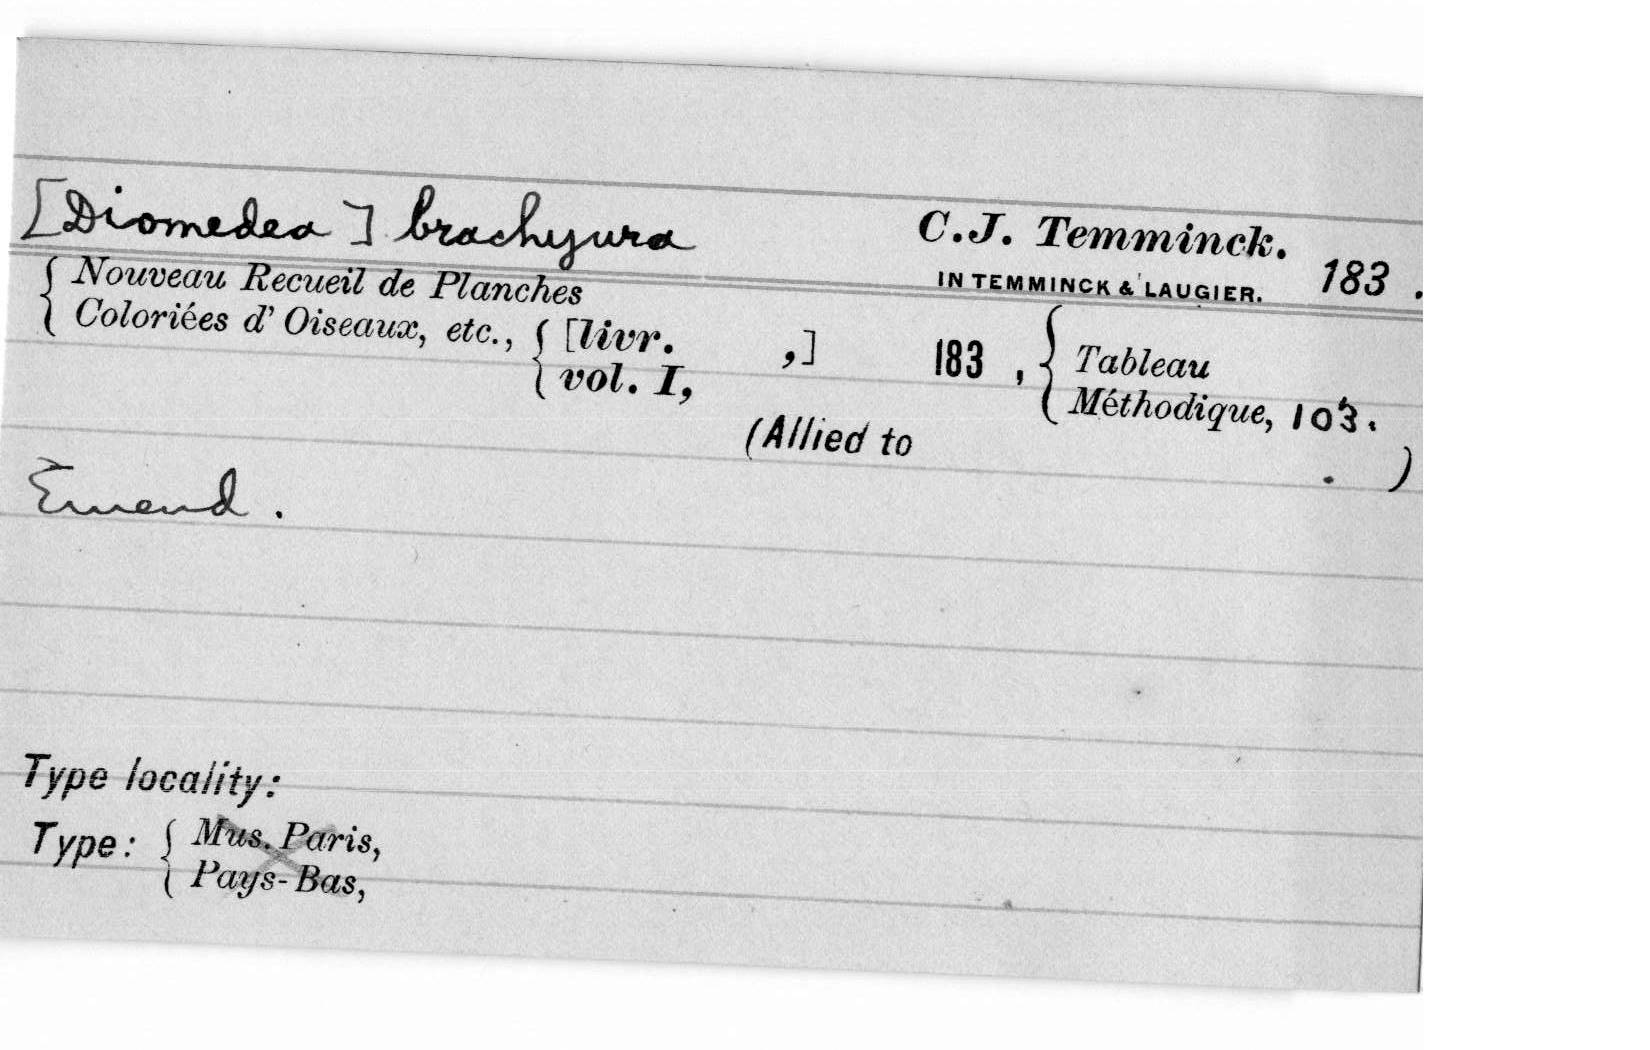 [Diomedea] brachyura C.J. Temminck.
IN TEMMINCK & LAUGIER. 183 .
{ Nouveau Recueil de Planches
Coloriées d' Oiseaux, etc., { [livr. ,] 183 , { Tableau
vol. I, Méthodique, 103.
(Allied to . )
Emend.
Type locality:
Type: { Mus. Paris,
Pays-Bas,